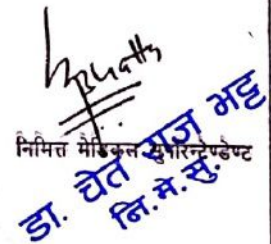 निमित्त मेडिकल सुपरिन्टेण्डेण्ट
डा. चेत राज भट्ट
नि.मे.सु.